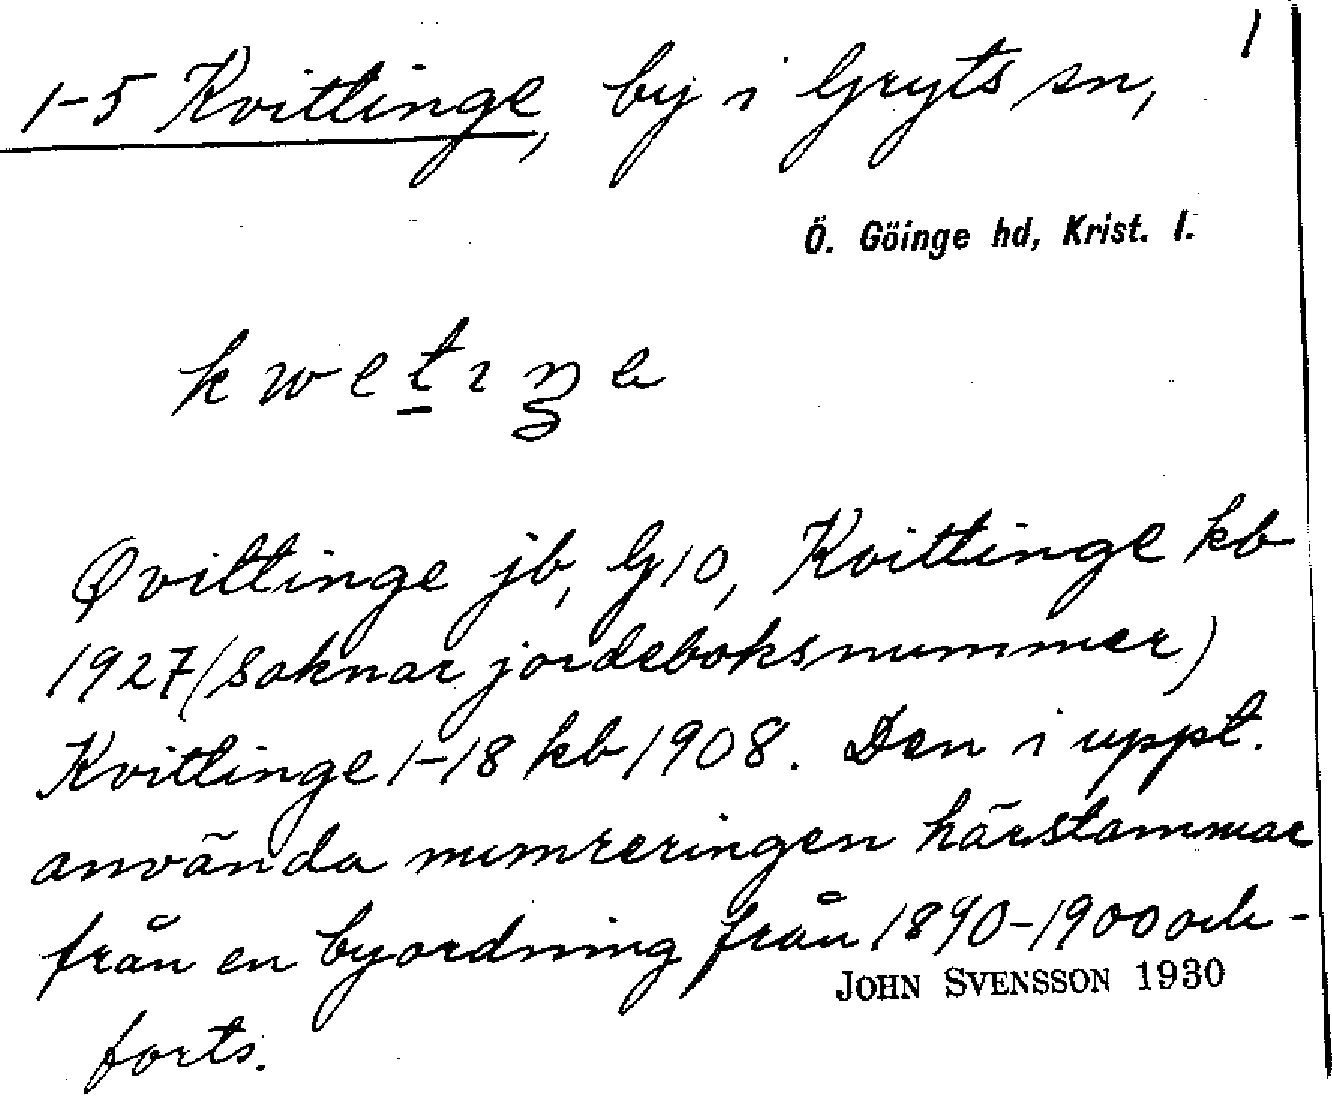 1
1-5 Kvittinge, by i Gryts sn,
Ö. Göinge hd, Krist. l.
Qvittinge jb, G10, Kvittinge kb
1927 (saknar jordeboksnummer)
Kvittinge 1-18 kb 1908. Den i uppt.
använda numreringen härstammar
från en byordning från 1890-1900 och -
JOHN SVENSSON 1930
forts.